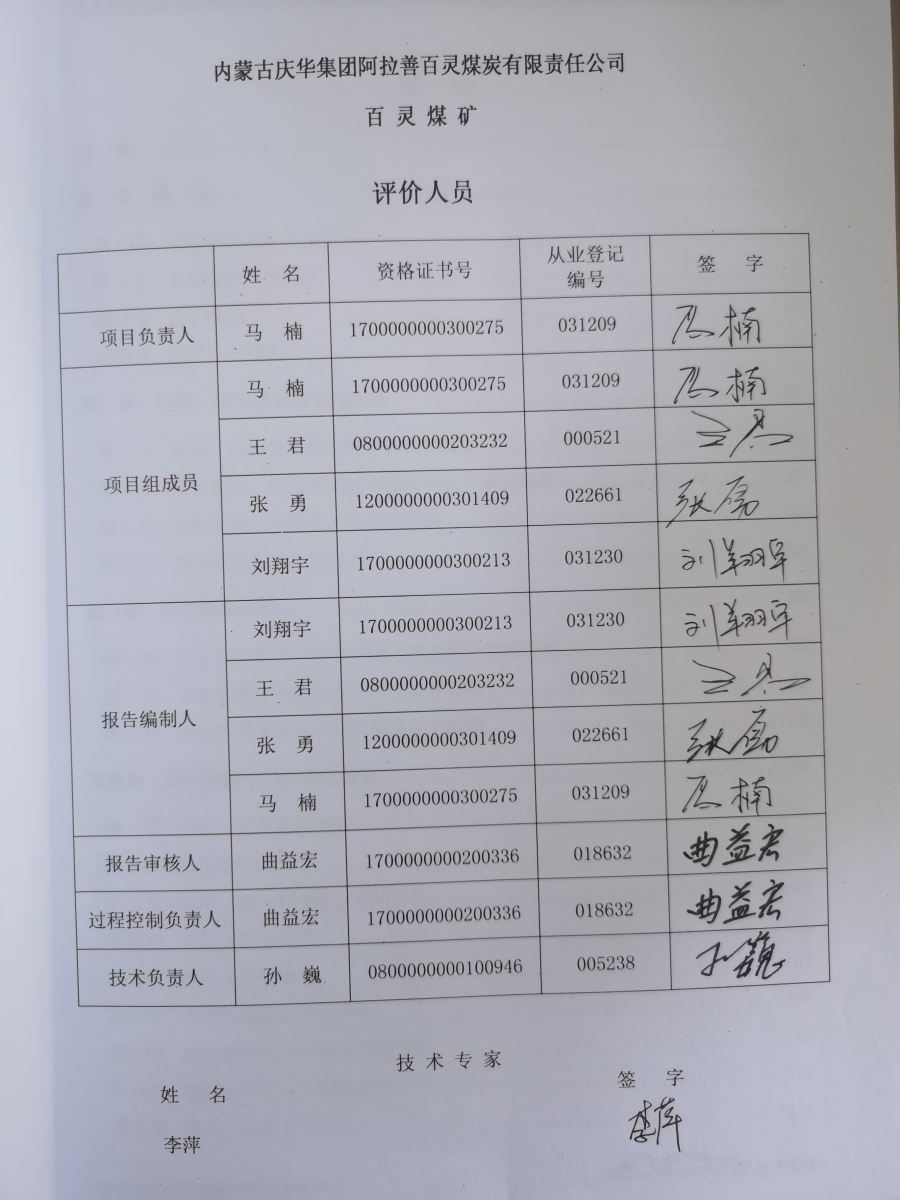 内蒙古庆华集团阿拉善百灵煤炭有限责任公司
百灵煤矿
评价人员
姓 名 资格证书号 从业登记编号 签 字
项目负责人 马 楠 1700000000300275 031209 马楠
项目组成员 马 楠 1700000000300275 031209 马楠
王 君 0800000000203232 000521 王君
张 勇 1200000000301409 022661 张勇
刘翔宇 1700000000300213 031230 刘翔宇
报告编制人 刘翔宇 1700000000300213 031230 刘翔宇
王 君 0800000000203232 000521 王君
张 勇 1200000000301409 022661 张勇
马 楠 1700000000300275 031209 马楠
报告审核人 曲益宏 1700000000200336 018632 曲益宏
过程控制负责人 曲益宏 1700000000200336 018632 曲益宏
技术负责人 孙 巍 0800000000100946 005238 孙巍
技术专家
姓 名 签 字
李萍 李萍